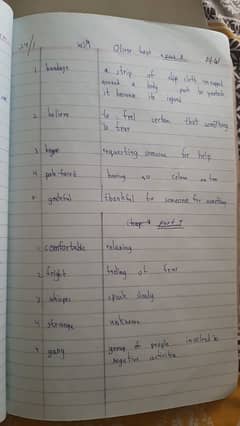 Oliver twist
1. bandage a strip of cloth wrapped
around a body part to protect
it because its injured
2. believe to feel certain that something
is true
3. requesting someone for help
4. pale-faced having no colour on face
5. grateful thankful to someone for something
Part 2
1 comfortable relaxing
2 fright feeling of fear
3 whisper speak slowly
4 strange unknown
5 gang group of people involved in
negative activities